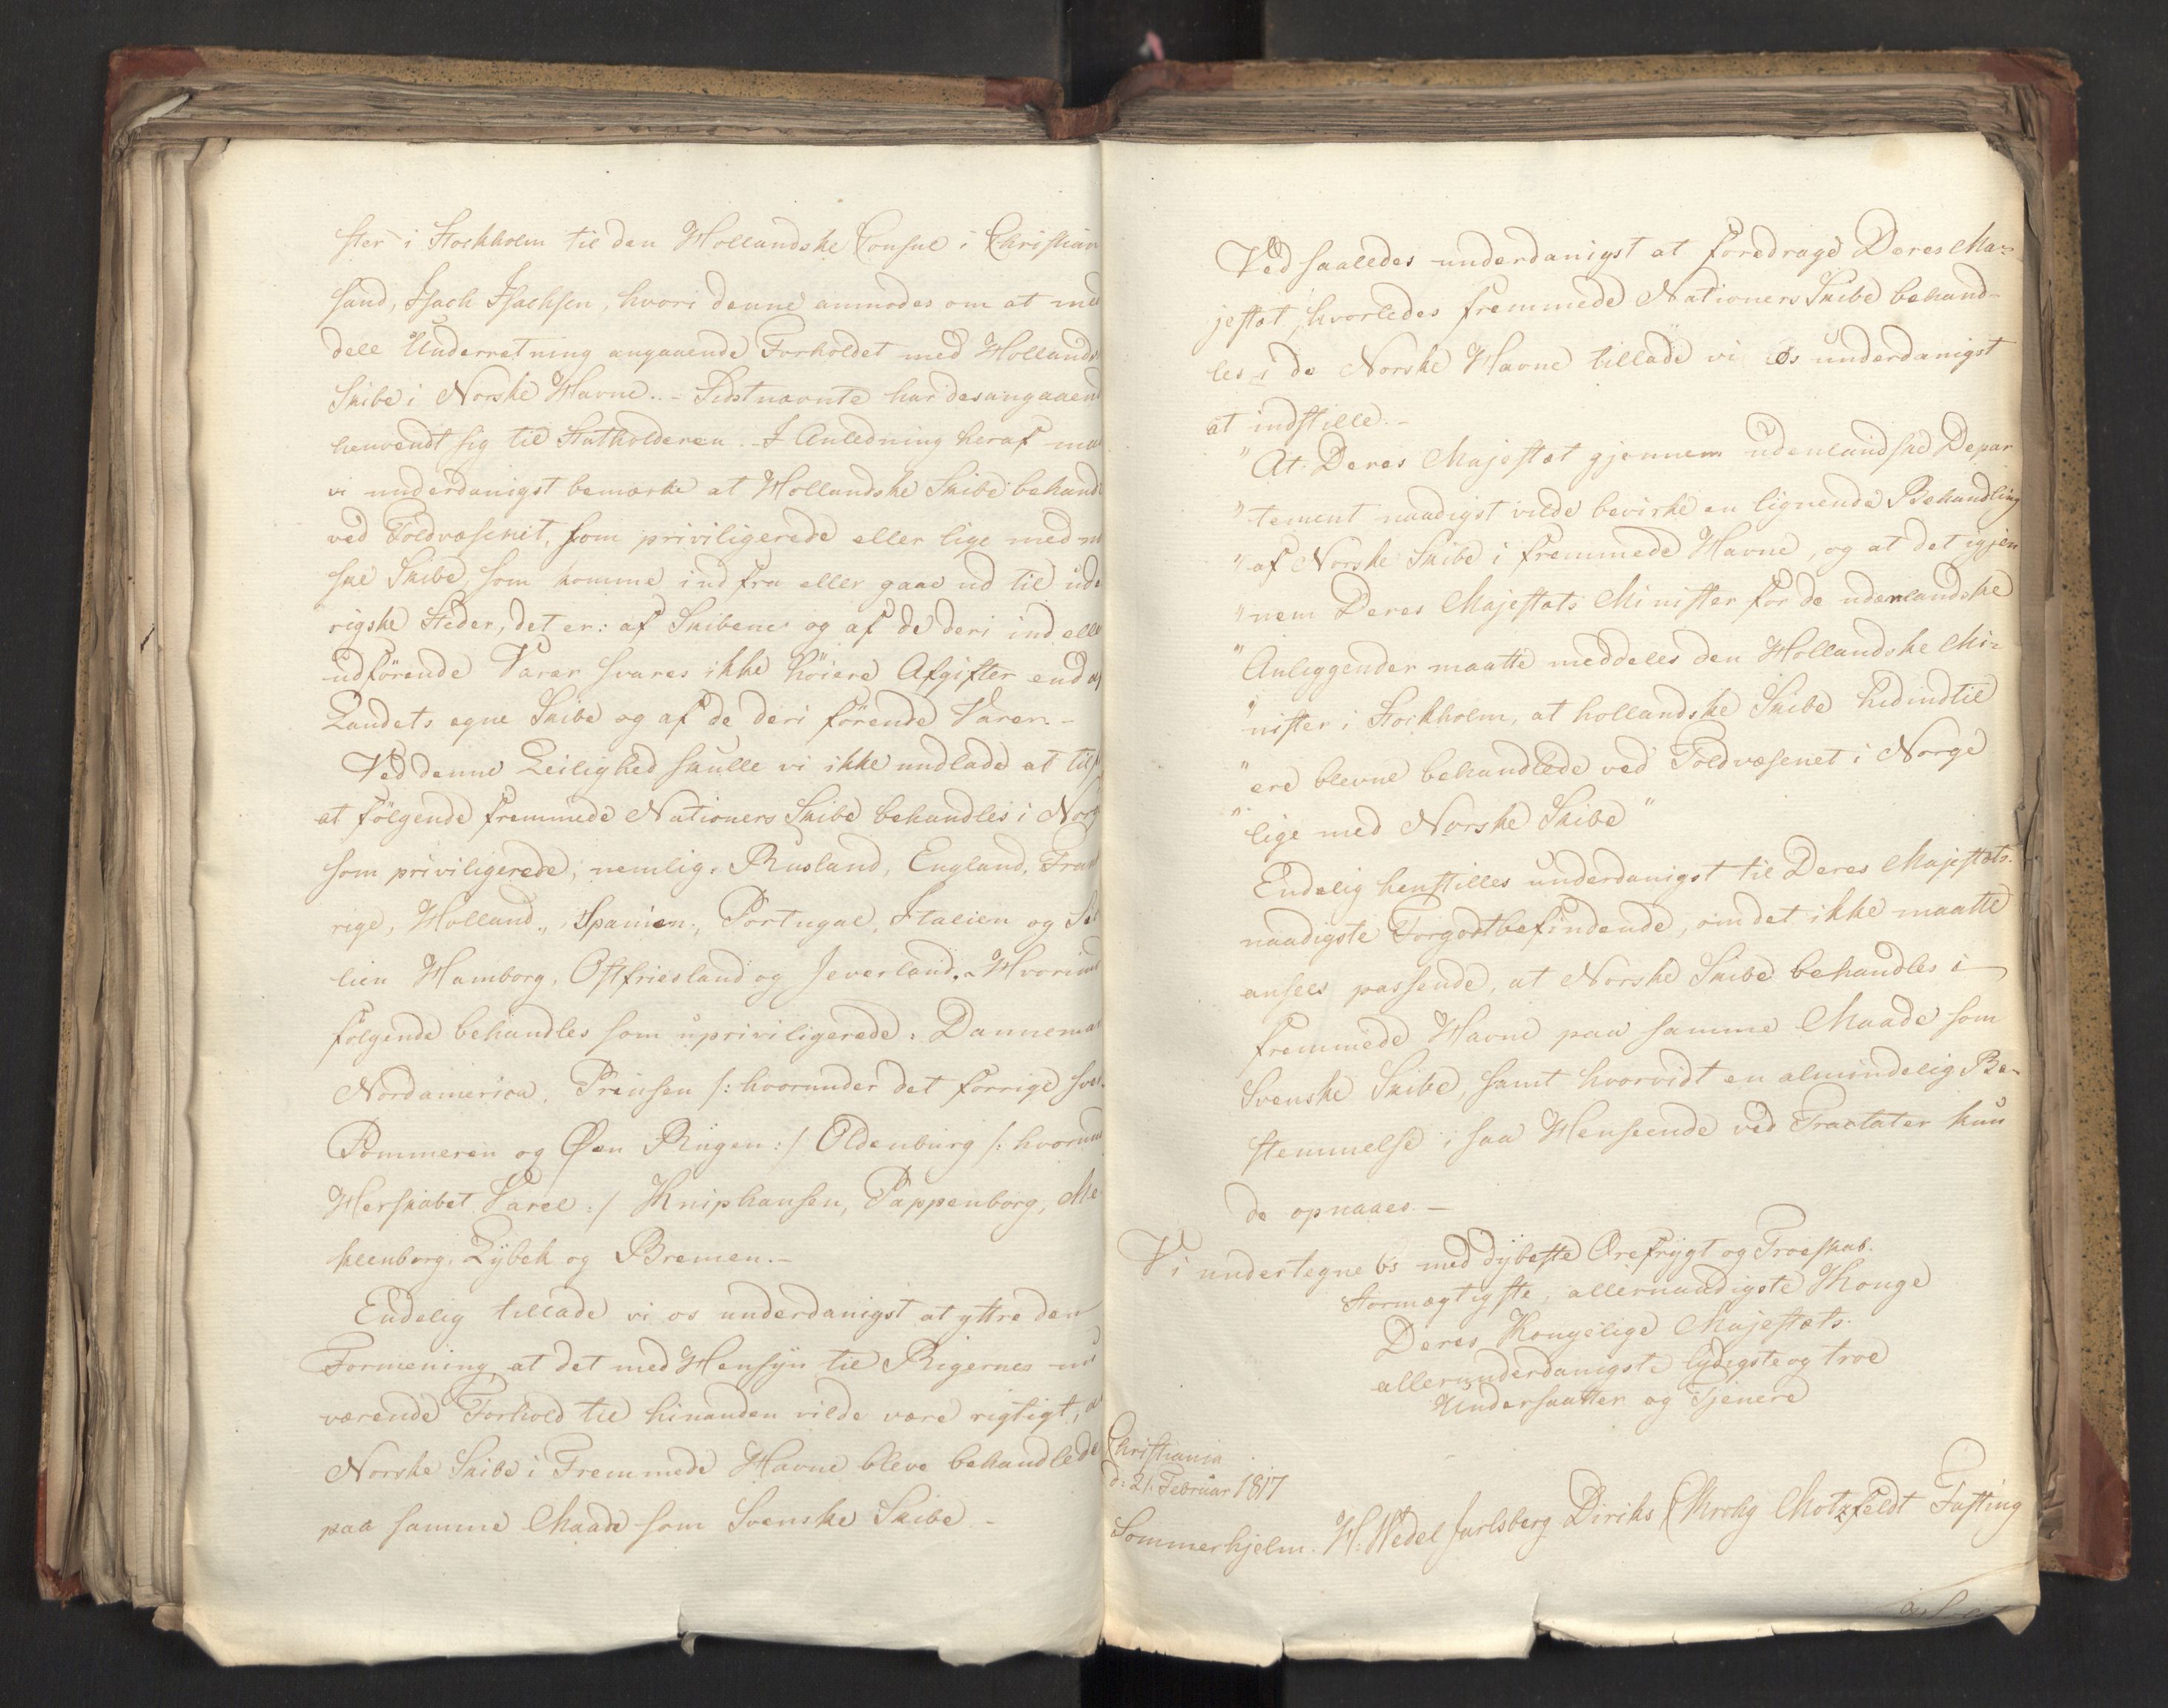 ster i Stockholm til den Hollandske Consul i Christian
sand, Isach Isachsen, hvori denne anmodes om at med
dele Underretning angaaende Forholdet med Hollandsk
Skibe i Norske Havne.. - Sidstnævnte har desangaaend
henvendt sig til Statholderen. I Anledning heraf maa
vi underdanigst bemærke at Hollandske Skibe behandl
ved Toldvæsenet, som priviligerede eller lige med no
ske Skibe, som komme ind fra eller gaae ud til ude
rigske Steder, det er: af Skibene og af de deri ind elle
udförende Varer svares ikke höiere Afgifter end af
Landets egne Skibe og af de deri förende Varer. -
Ved denne Leilighed skulle vi ikke undlade at til
at fölgende fremmede Nationers Skibe behandles i Norg
som priviligerede, nemlig: Rusland, England, Frank
rige, Holland, Spanien, Portugal, Italien og Si
lien Hamborg, Ostfriesland og Jeverland, - Hvorimod
fölgende behandles som upriviligerede: Dannemar
Nordamerica, Preusen /: hvorunder det forrige sve
Pommeren og Øen Rügen :/ Oldenburg /: hvorund
Herskabet Varel :/ Kniphausen, Pappenborg, Me
klenborg, Lybek og Bremen. -
Endelig tillade vi os underdanigst at yttre den
Formening, at det med Hensyn til Rigernes nu
værende Forhold til hinanden vilde være rigtigt, a
Norske Skibe i Fremmede Havne bleve behandlede
paa samme Maade som Svenske Skibe -
Ved saaledes underdanigst at foredrage Deres Ma=
jestæt, hvorledes fremmede Nationers Skibe behand-
les i de Norske Havne tillade vi os underdanigst
at indstille. -
"At Deres Majestæt gjennem udenlandske Depar
"tement naadigst vilde bevirke en lignende Behandling
"af Norske Skibe i fremmede Havne, og at det igjen
"nem Deres Majestæts Minister for de udenlandske
"Anliggender maatte meddeles den Hollandske Mi=
"nister i Stockholm, at hollandske Skibe hidindtil
"ere blevne behandlede ved Toldvæsenet i Norge
"lige med Norske Skibe"
Endelig henstilles underdanigst til Deres Majestæts
naadigste Forgodtbefindende, om det ikke maatte
ansees passende, at Norske Skibe behandles i
fremmede Havne paa samme Maade som
Svenske Skibe, samt hvorvidt en almindelig Be-
stemmelse i saa Henseende ved Tractater kun
de opnaaes. -
Vi undertegne os med dybeste Ærefrygt og Troeskab.
Stormægtigste, allernaadigste Konge
Deres Kongelige Majestæts.
allerunderdanigste lydigste og troe
Undersaatter og Tjenere
Christiania
d: 21. Februar 1817
Sommerhjelm. H: Wedel Jarlsberg Diriks Krohg Motzfeldt Fasting